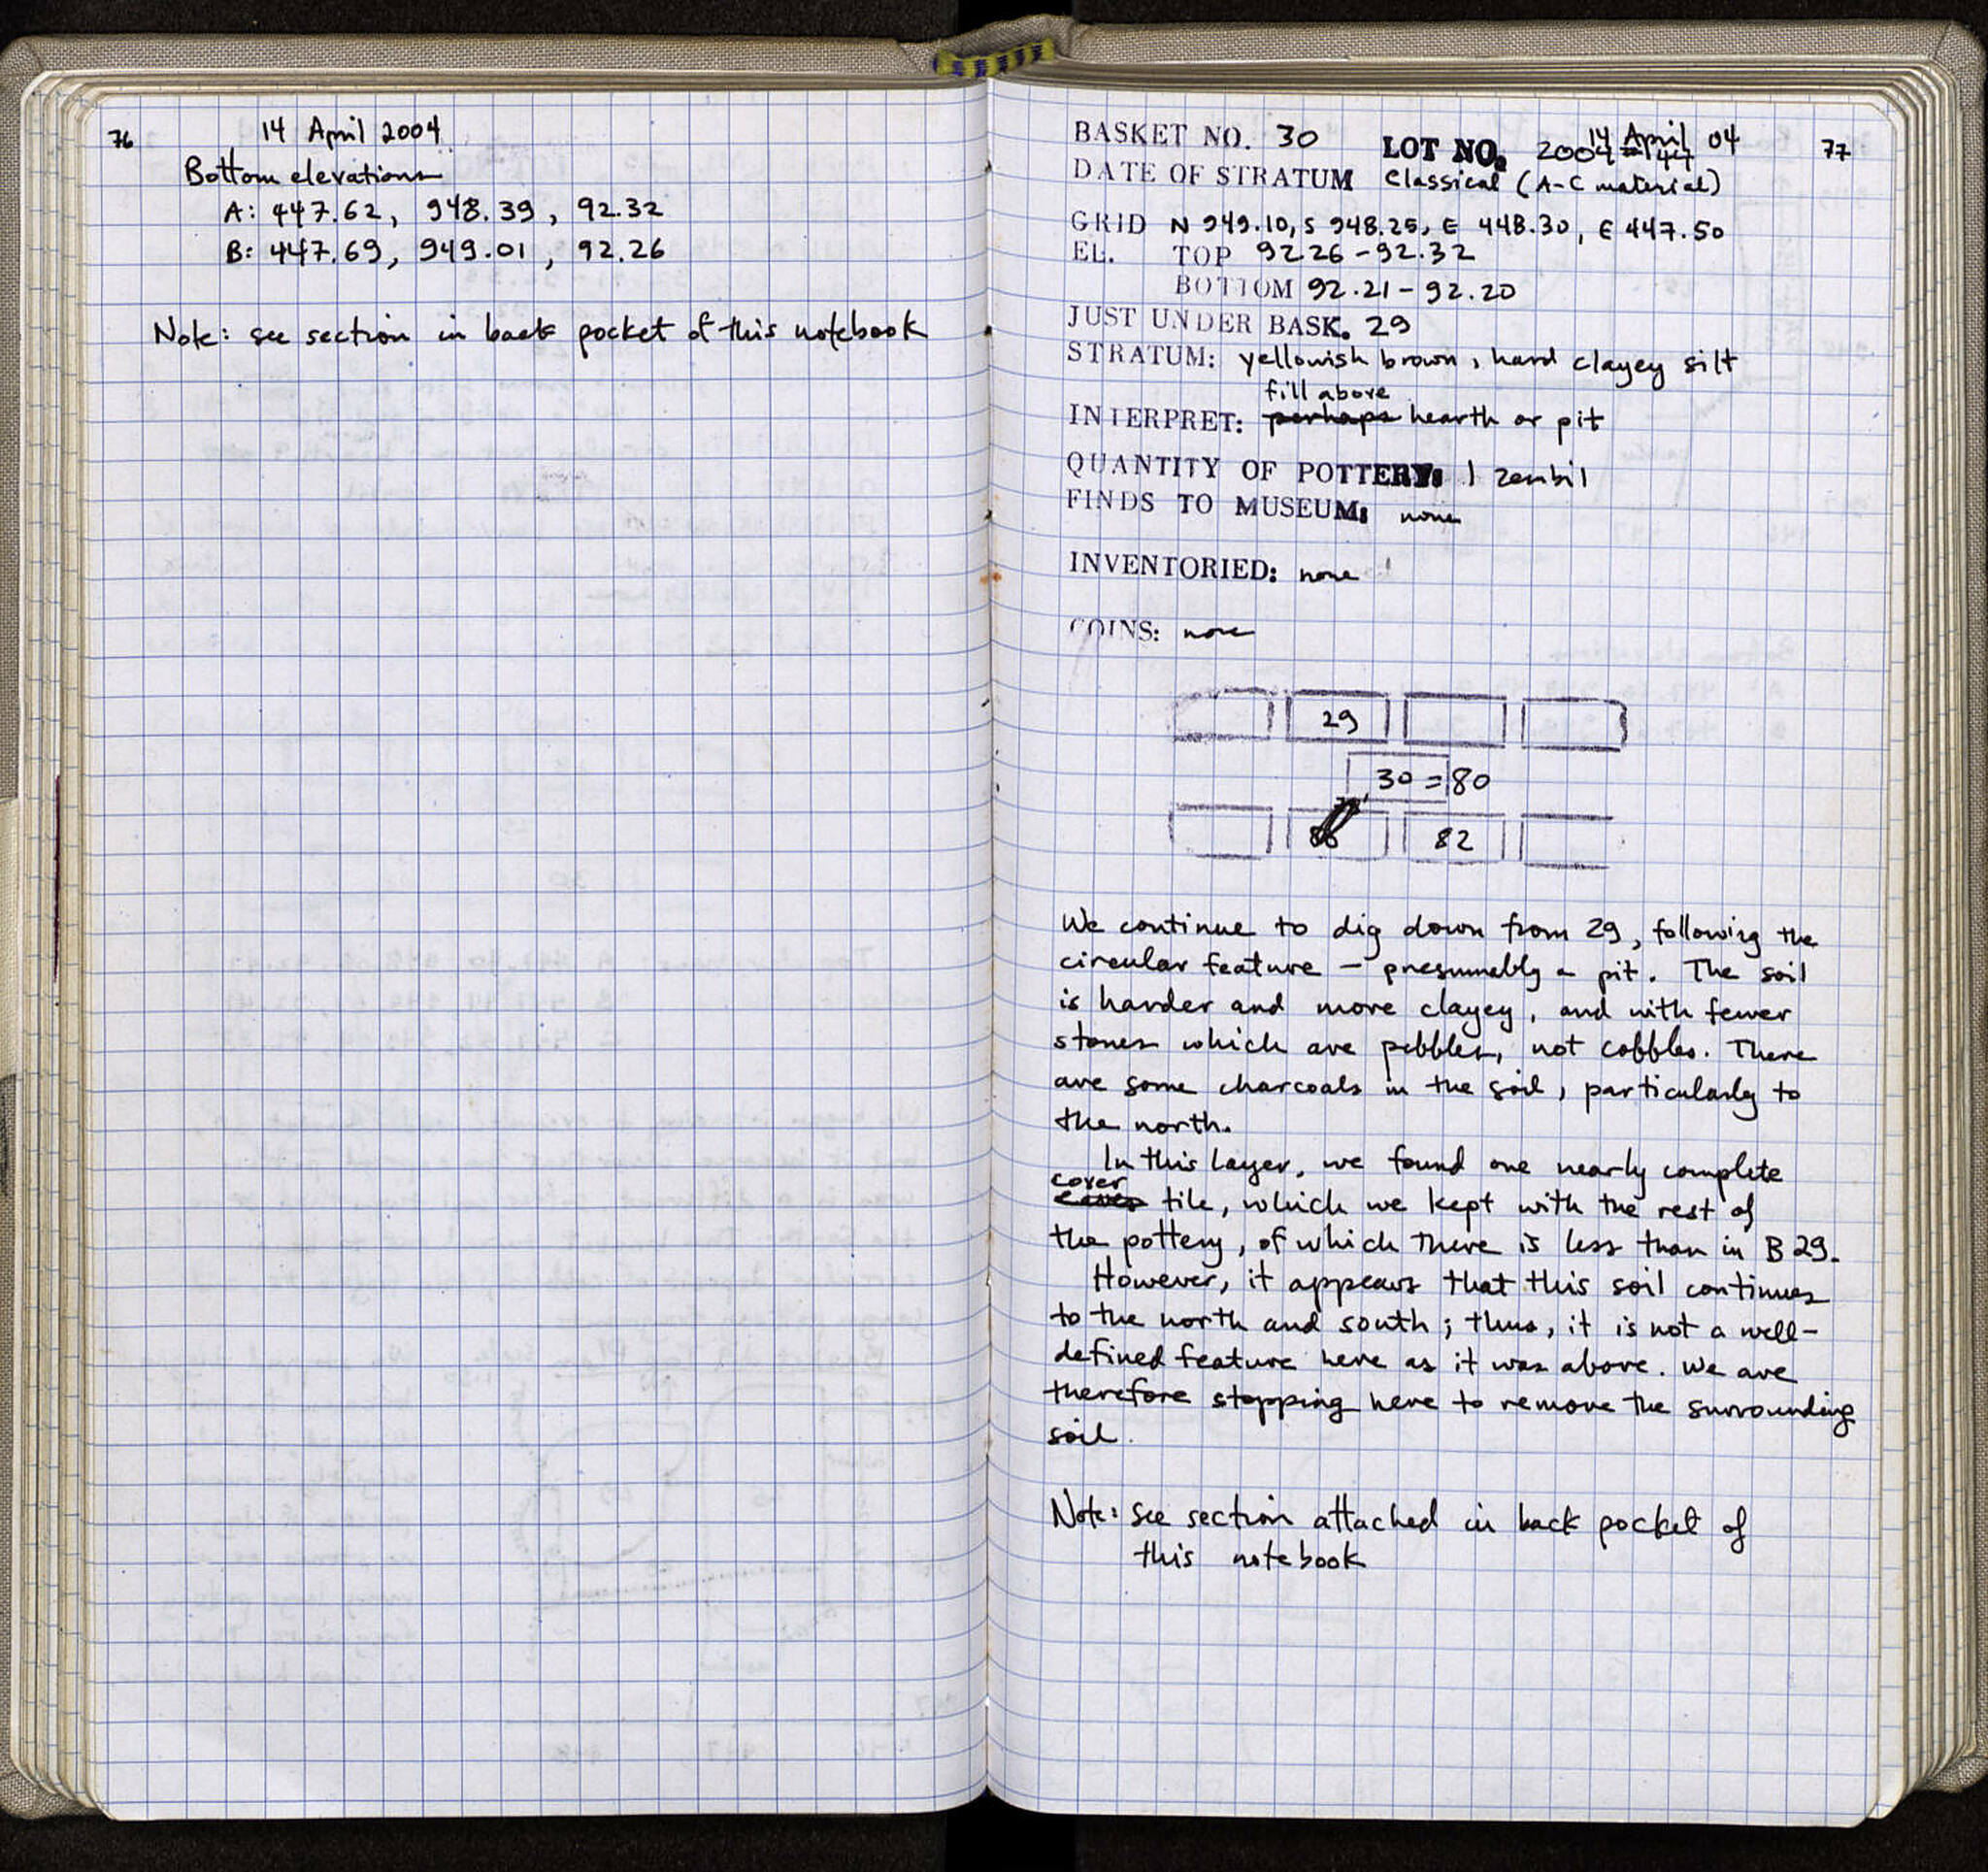 76
14 April 2004
Bottom elevations
A: 447.62, 948.39, 92.32
B: 447.69, 949.01, 92.26
Note: see section in back pocket of this notebook
14 April 04
77
BASKET NO. 30 LOT NO. 2004-
DATE OF STRATUM Classical (A-C material)
GRID N 949.10, S 948.25, E 448.30, E 447.50
EL. TOP 92.26-92.32
BOTTOM 92.21-92.20
JUST UNDER BASK. 29
STRATUM: yellowish brown, hard clayey silt
fill above
INTERPRET: perhaps hearth or pit
QUANTITY OF POTTERY: 1 zembil
FINDS TO MUSEUM: none
INVENTORIED: none
COINS: none
29
30 = 80
82
We continue to dig down from 29, following the
circular feature — presumably a pit. The soil
is harder and more clayey, and with fewer
stones which are pebbles, not cobbles. There
are some charcoals in the soil, particularly to
the north.
In this layer, we found one nearly complete
cover
tile, which we kept with the rest of
the pottery, of which there is less than in B 29.
However, it appears that this soil continues
to the north and south; thus, it is not a well-
defined feature here as it was above. We are
therefore stopping here to remove the surrounding
soil.
Note: See section attached in back pocket of
this notebook